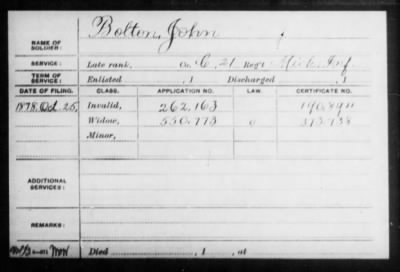 Bolton, John
NAME OF SOLDIER:
SERVICE: Late rank, Co. C, 21 Reg't Mich. Inf.
TERM OF SERVICE: Enlisted , 1 Discharged , 1
DATE OF FILING. CLASS. APPLICATION NO. LAW. CERTIFICATE NO.
1878. Oct 25. Invalid, 262,163
Widow, 550,773 313,738
Minor,
ADDITIONAL SERVICES:
REMARKS:
Died , 1 , at